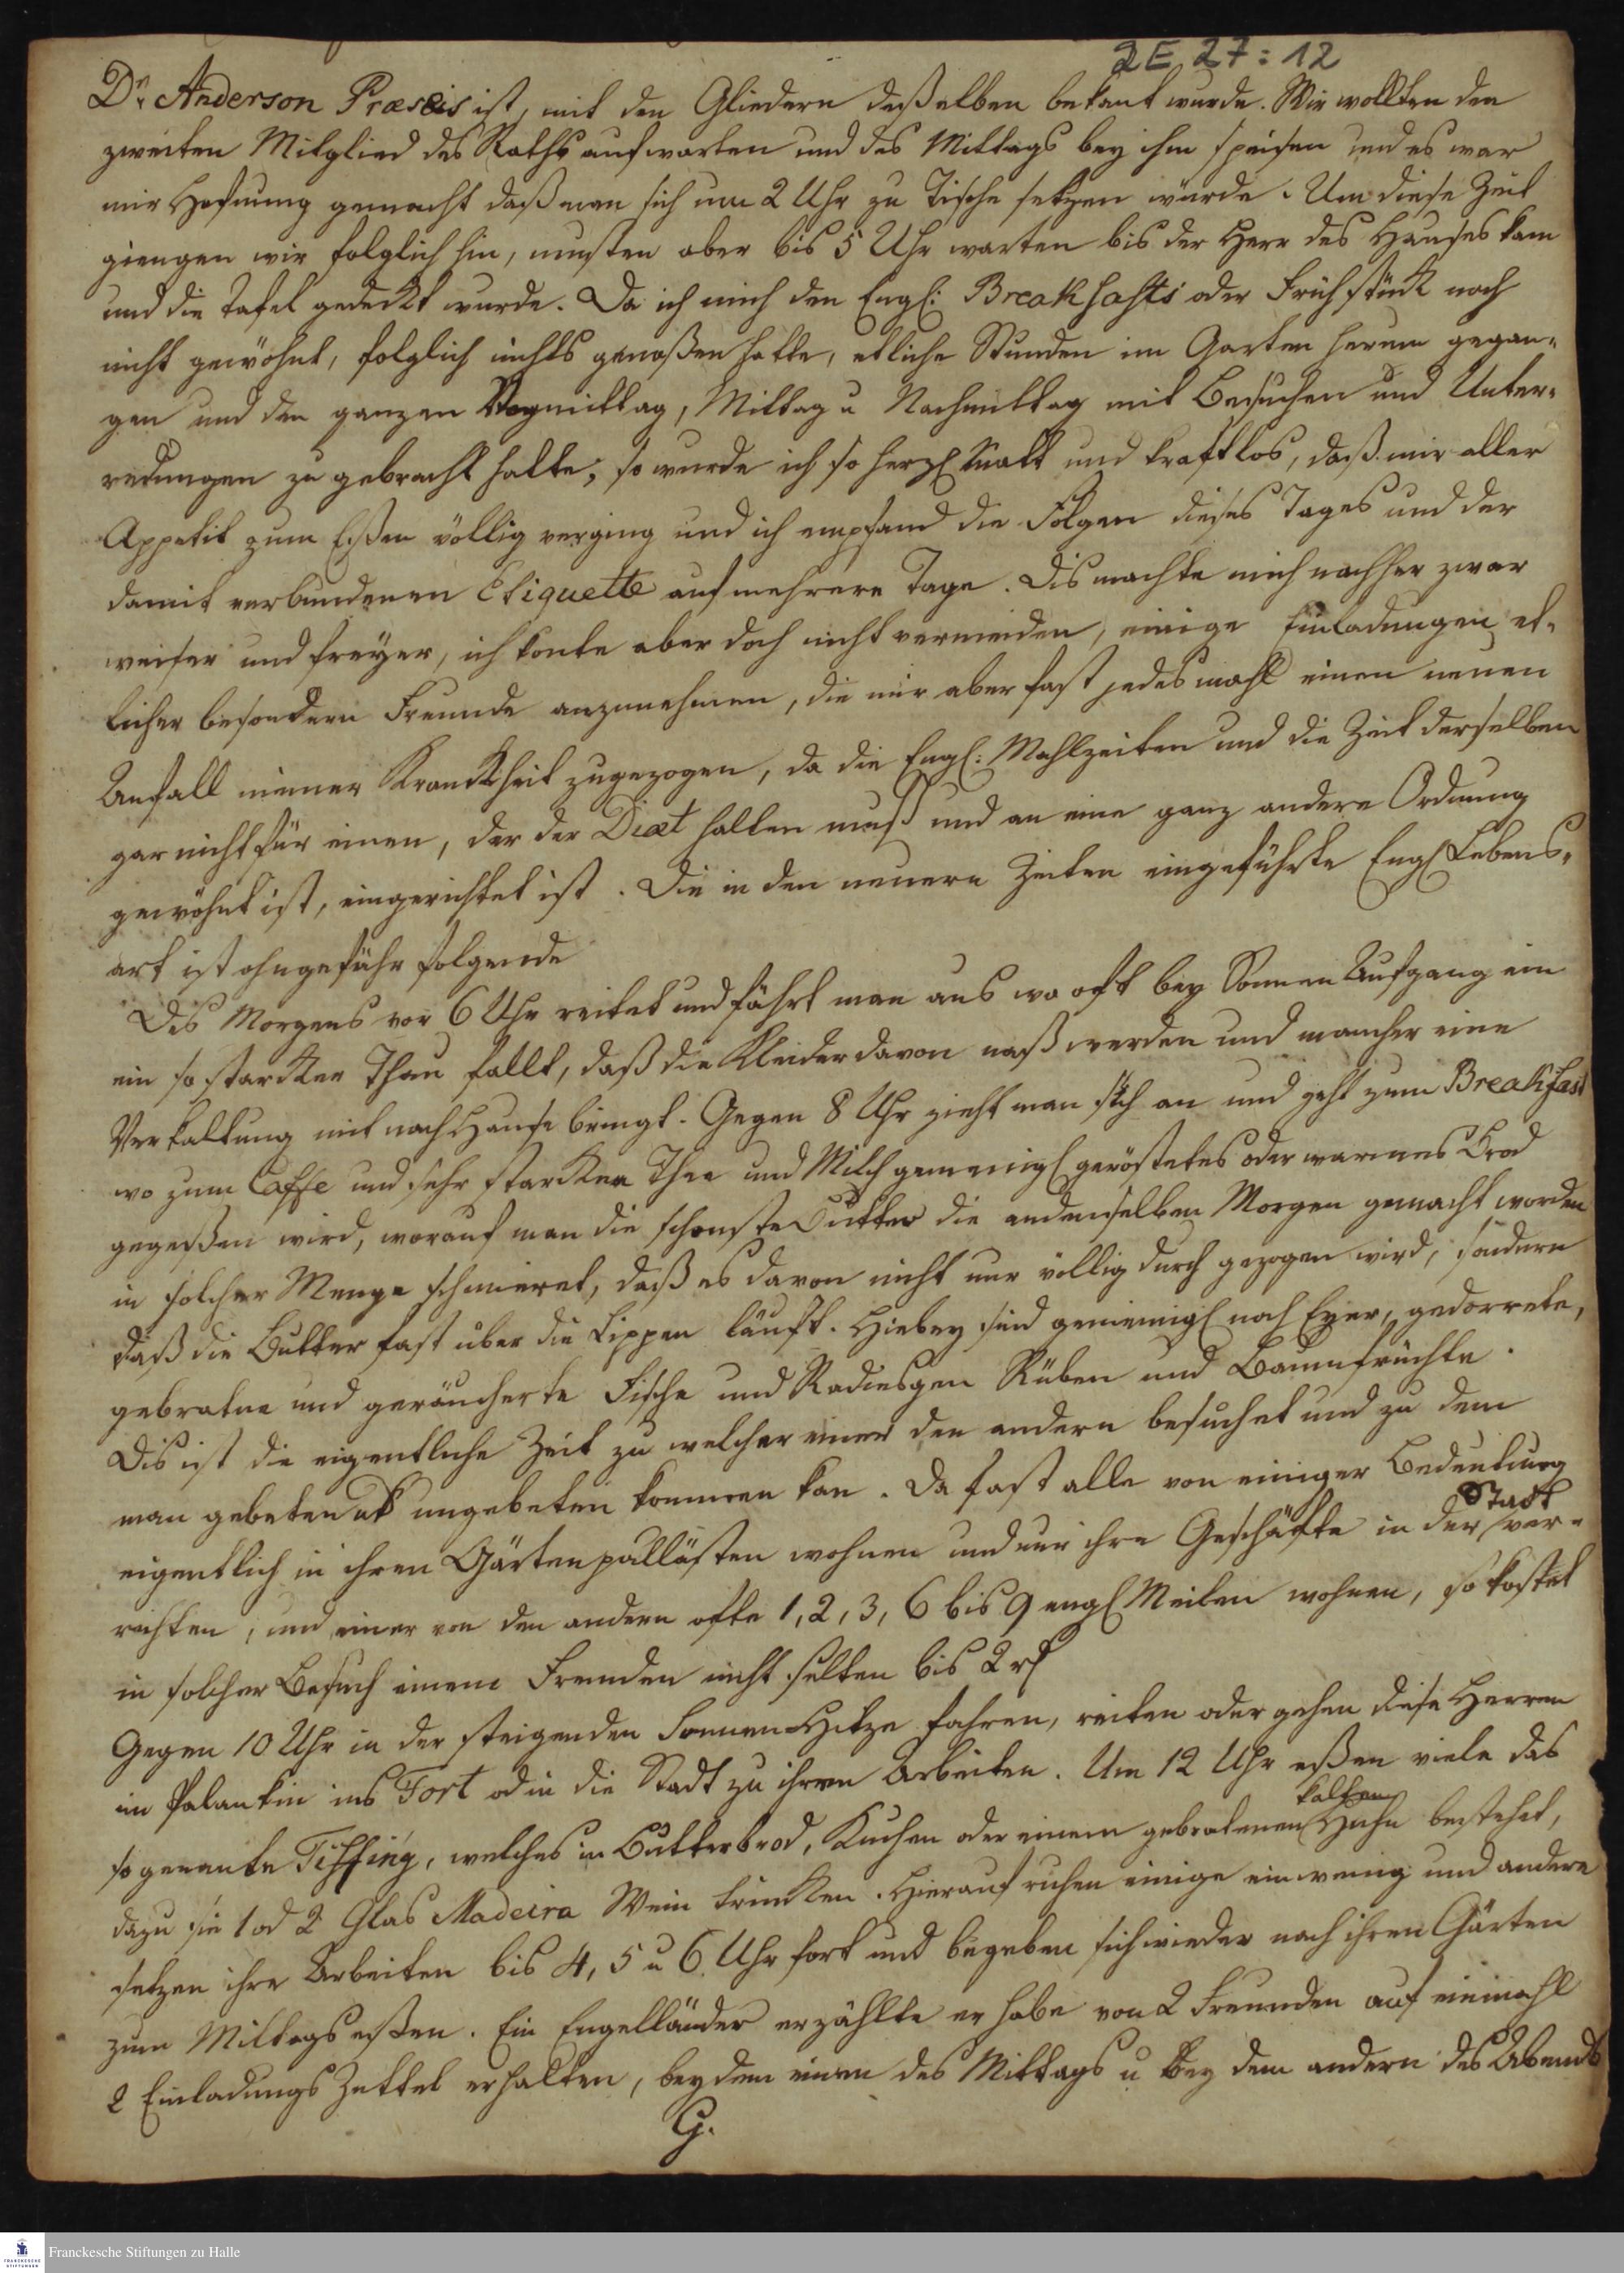 2E 27:12
Dr. Anderson Praeseis ist, mit den Gliedern deßelben bekant wurde. Wir wollten den
zweiten Mitglied des Raths aufwarten und des Mittags bey ihm speisen und es war
mir Hofnung gemacht daß man sich um 2 Uhr zu Tische setzen würde. Um diese Zeit
giengen wir folglich hin, musten aber bis 5 Uhr warten bis der Herr des Hauses kam
und die Tafel gedeckt wurde. Da ich mich den Engl: Breakfasts oder Frühstück noch
nicht gewöhnt, folglich nichts genoßen hatte, etliche Stunden im Garten herum gegan-
gen und den ganzen Vormittag, Mittag u Nachmittag mit Besuchen und Unter-
redungen zu gebracht hatte, so wurde ich so herzl matt und kraftlos, daß mir aller
Appetit zum Eßen völlig verging und ich empfand die Folgen dieses Tages und der
damit verbundenen Etiquette auf mehrere Tage. Dis machte mich nachher zwar
weiser und freyer, ich konte aber doch nicht vermeiden, einige Einladungen et-
licher besondern Freunde anzunehmen, die mir aber fast jedesmahl einen neuen
Anfall meiner Kranckheit zugezogen, da die Engl: Mahlzeiten und die Zeit derselben
gar nicht für einen, der der Diæt halten muß und an eine ganz andere Ordnung
gewöhnt ist, eingerichtet ist. Die in den neuern Zeiten eingeführte Engl Lebens-
art ist ohngefähr folgende
Des Morgens vor 6 Uhr reitet und fährt man aus wo oft bey Sonnen Aufgang ein
ein so starcker Thau fällt, daß die Kleider davon naß werden und mancher eine
Verkaltung mit nach Hause bringt. Gegen 8 Uhr zieht man sich an und geht zum Breakfast
wo zum Caffe und sehr starcken Thee und Milch gemeinigl geröstetes oder warmes Brod
gegeßen wird, worauf man die schonste Butter die an demselben Morgen gemacht worden
in solcher Menge schmieret, daß es davon nicht nur völlig durch gezogen wird, sondern
daß die Butter fast über die Lippen läuft. Hiebey sind gemeinigl noch Eyer, gedorrete,
gebratne und geräucherte Fische und Radiesgen Rüben und Baumfrüchte.
Dis ist die eigentliche Zeit zu welcher einer den andern besuchet und zu dem
man gebeten od ungebeten kommen kan. Da fast alle von einiger Bedeutung
eigentlich in ihren Gärtenpallästen wohnen und nur ihre Geschäfte in der Stadt ver-
richten, und einer von den andern ofte 1, 2, 3, 6 bis 9 engl Meilen wohnen, so kostet
in solcher Besuch einem Fremden nicht selten bis 2 rl
Gegen 10 Uhr in der steigenden Sonnen Hitze fahren, reiten oder gehen diese Herren
im Palankin ins Fort od in die Stadt zu ihren Arbeiten. Um 12 Uhr eßen viele das
so genante Tiffing, welches in Butterbrod, Kuchen oder einem gebratenen kalten Huhn bestehet,
dazu sie 1 od 2 Glas Madeira Wein trincken. Hierauf ruhen einige ein wenig und andere
setzen ihre Arbeiten bis 4, 5 u 6 Uhr fort und begeben sich wieder nach ihren Gärten
zum Mittagseßen. Ein Engelländer erzählte er habe von 2 Freunden auf einmahl
2 Einladungs Zettel erhalten, bey dem einen des Mittags u bey dem andern des Abends
G.
FRANCKESCHE STIFTUNGEN
Franckesche Stiftungen zu Halle